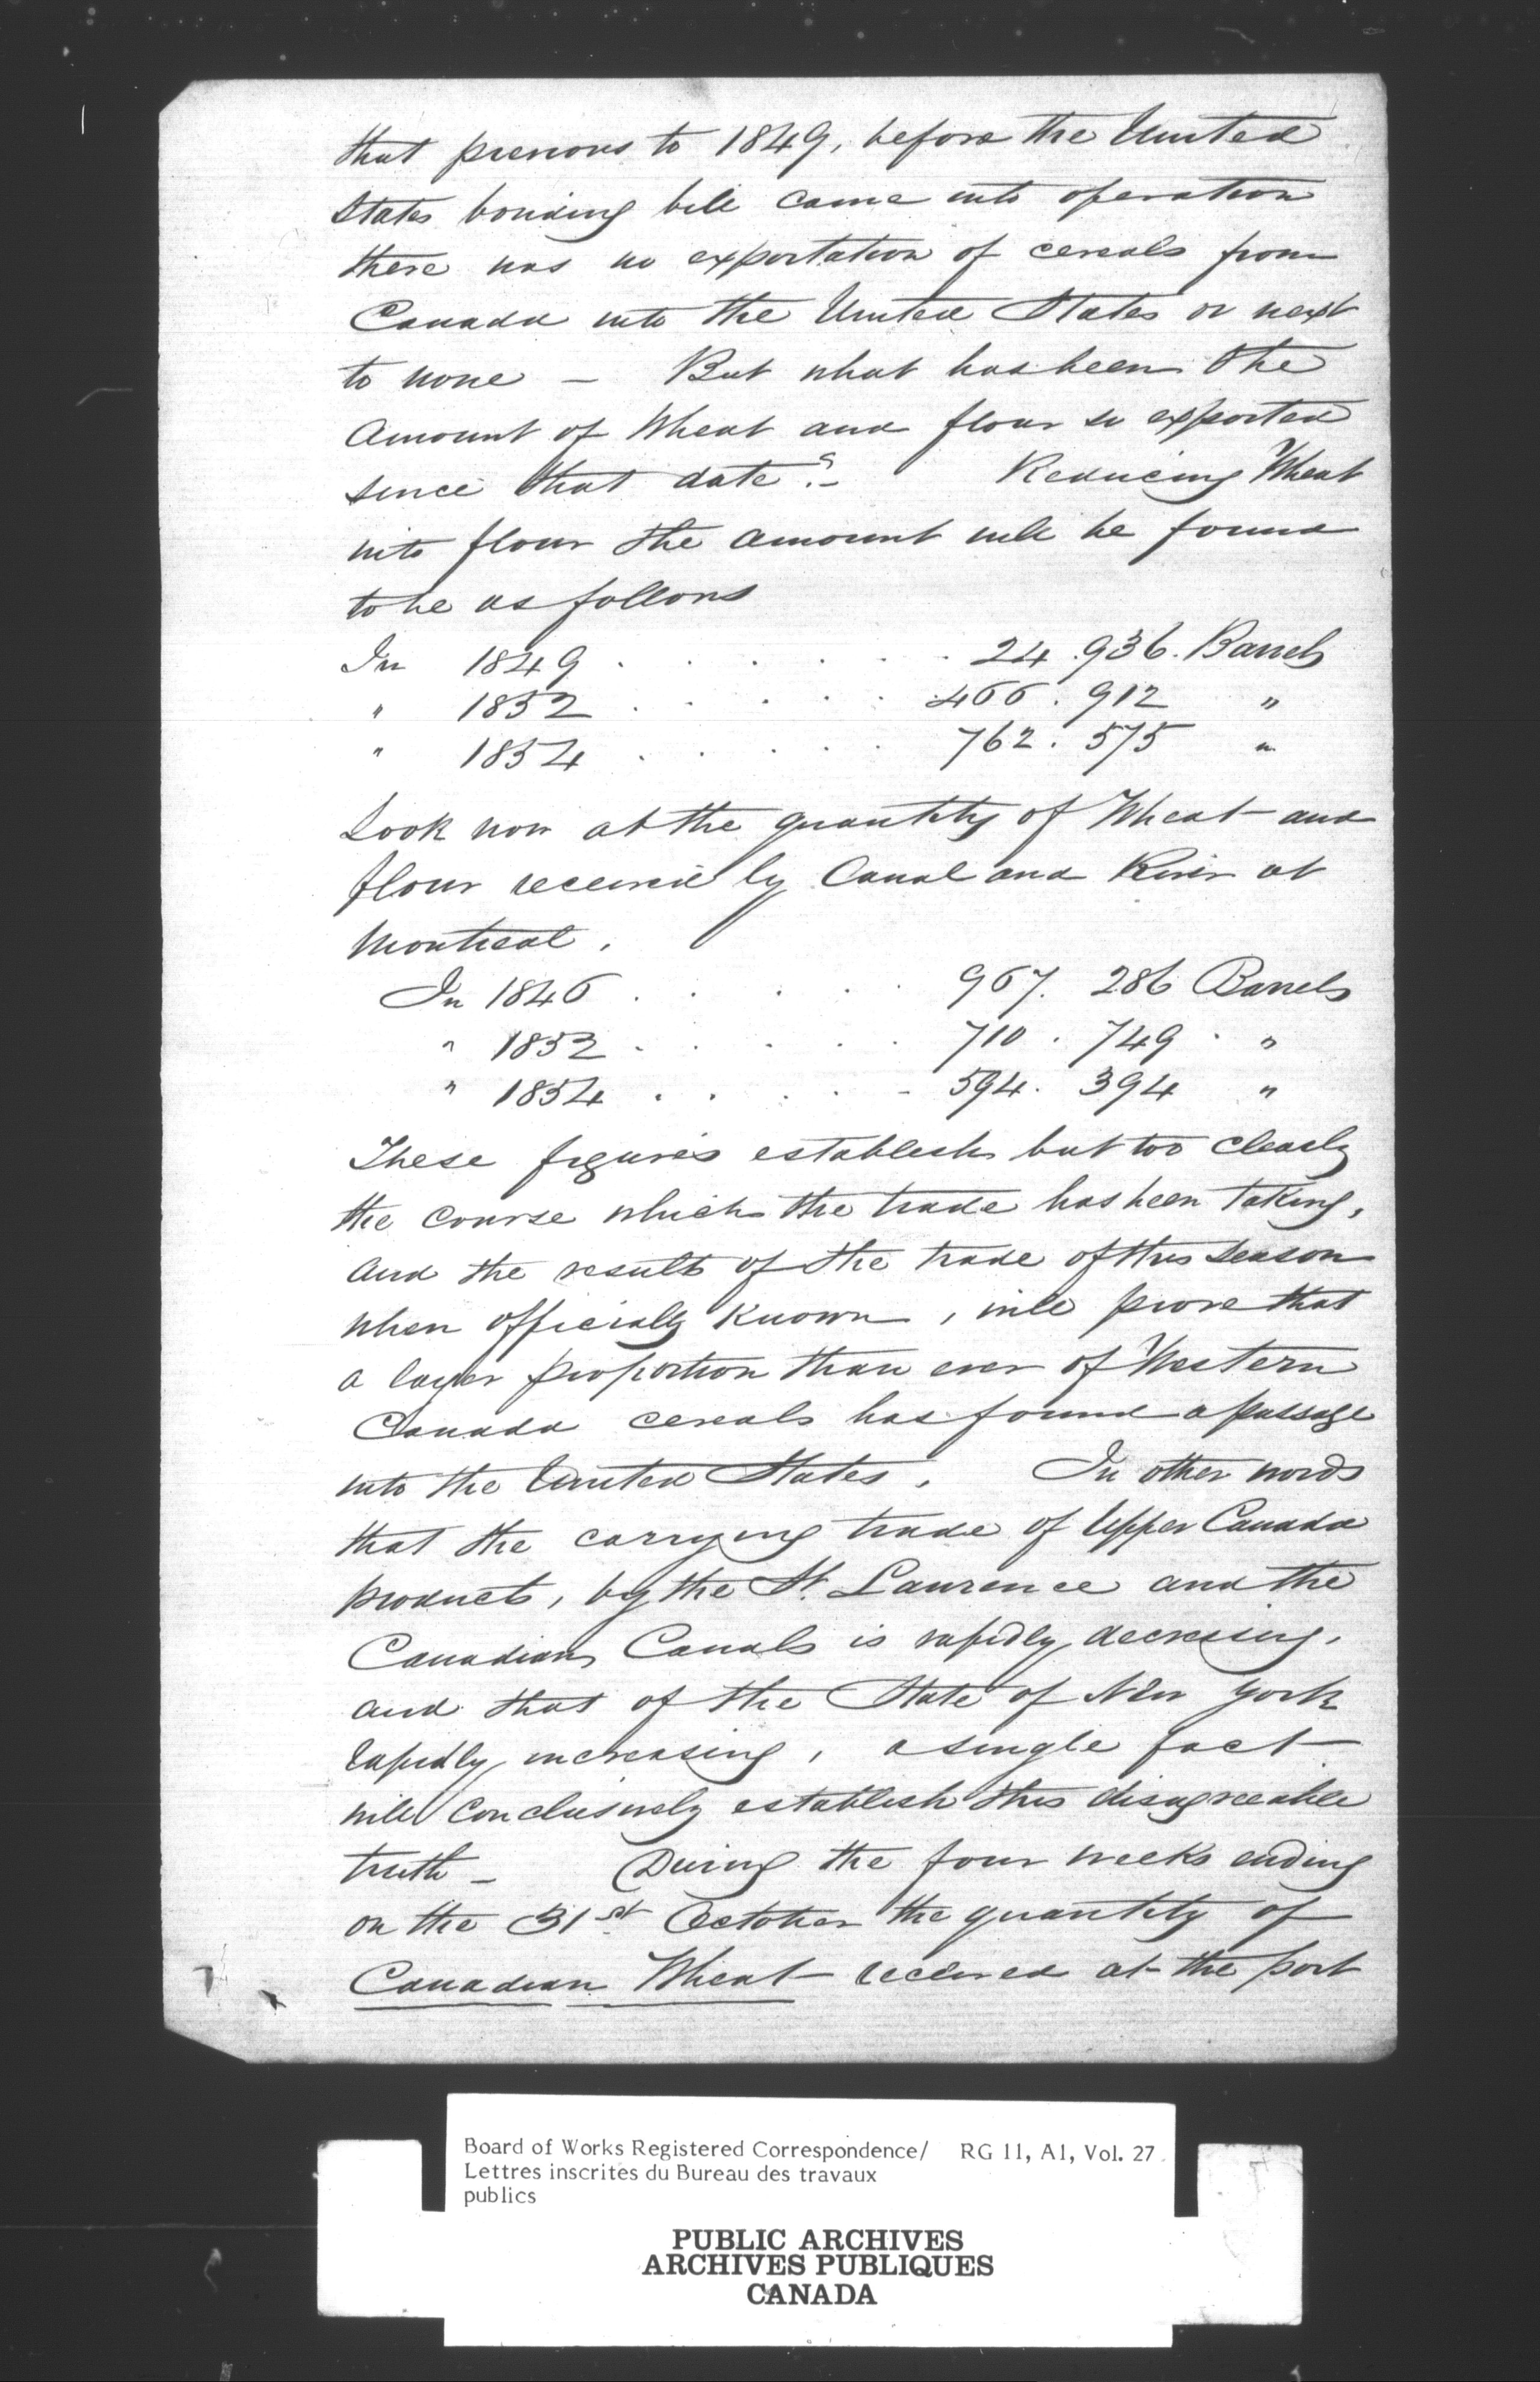 that previous to 1849, before the United
States bonding bill came into operation
there was no exportation of cereals from
Canada into the United States or next
to none — But what has been the
amount of Wheat and flour so exported
since that date? — Reducing Wheat
into flour the amount will be found
to be as follows
In 1849 . . . . . . . 24.936. Barrels
" 1852 . . . . . 466.912 "
" 1854 . . . . . 762.575 "
Look now at the quantity of Wheat and
flour received by Canal and River at
Montreal.
In 1846 . . . . . 967. 286 Barrels
" 1852 . . . . . 710. 749 "
" 1854 . . . . . 594. 394 "
These figures establish but too clearly
the course which the trade has been taking,
and the results of the trade of this Season
when officially known, will prove that
a larger proportion than ever of Western
Canada cereals has found a passage
into the United States. In other words
that the carrying trade of Upper Canada
products, by the St. Laurence and the
Canadian Canals is rapidly decresing,
and that of the State of New York
rapidly increasing, a single fact
will conclusively establish this disagreeable
truth — During the four weeks ending
on the 31st October the quantity of
Canadian Wheat received at the port
Board of Works Registered Correspondence/ RG 11, A1, Vol. 27
Lettres inscrites du Bureau des travaux
publics
PUBLIC ARCHIVES
ARCHIVES PUBLIQUES
CANADA